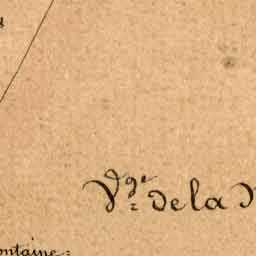 Vge. de la
ontaine